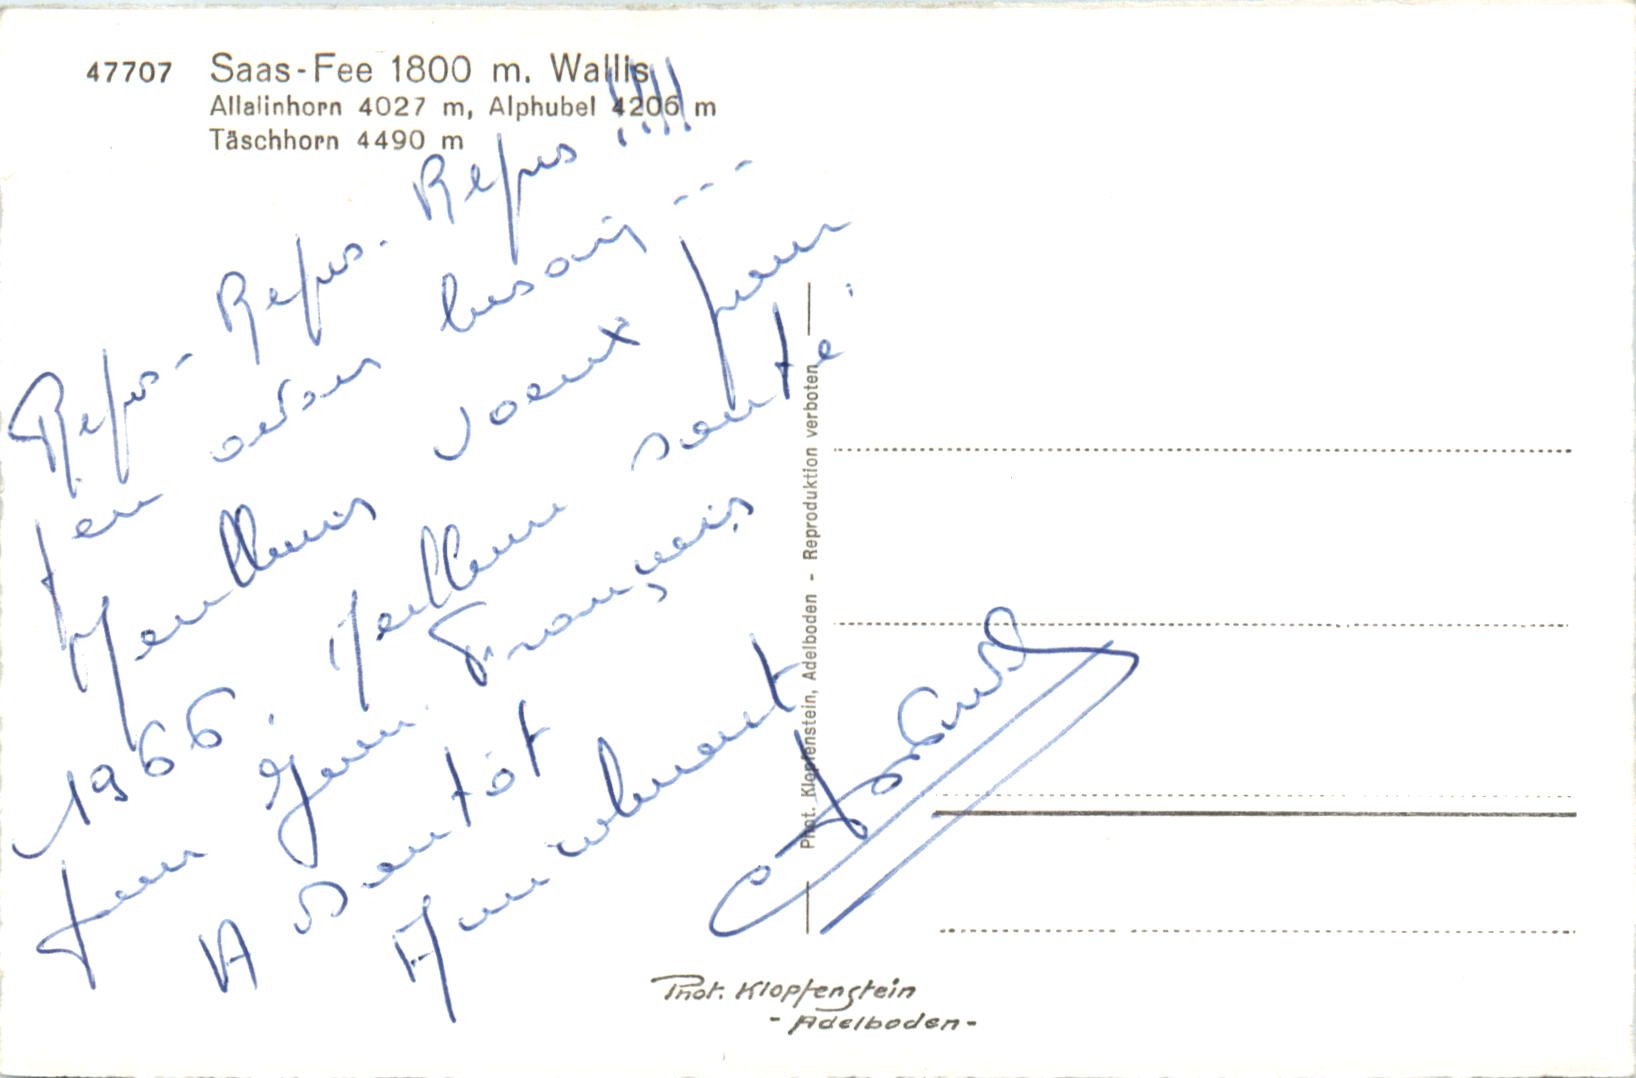 47707 Saas-Fee 1800 m. Wallis
Allalinhorn 4027 m, Alphubel 4206 m
Täschhorn 4490 m
Repos - Repos. Repos !!!!
j'en avais besoin ...
Meilleurs voeux pour
1966. Meilleure santé
pour Jean. François
A bientôt
Amicalement
Phot. Klopfenstein, Adelboden - Reproduktion verboten
Phot. Klopfenstein
- Adelboden -